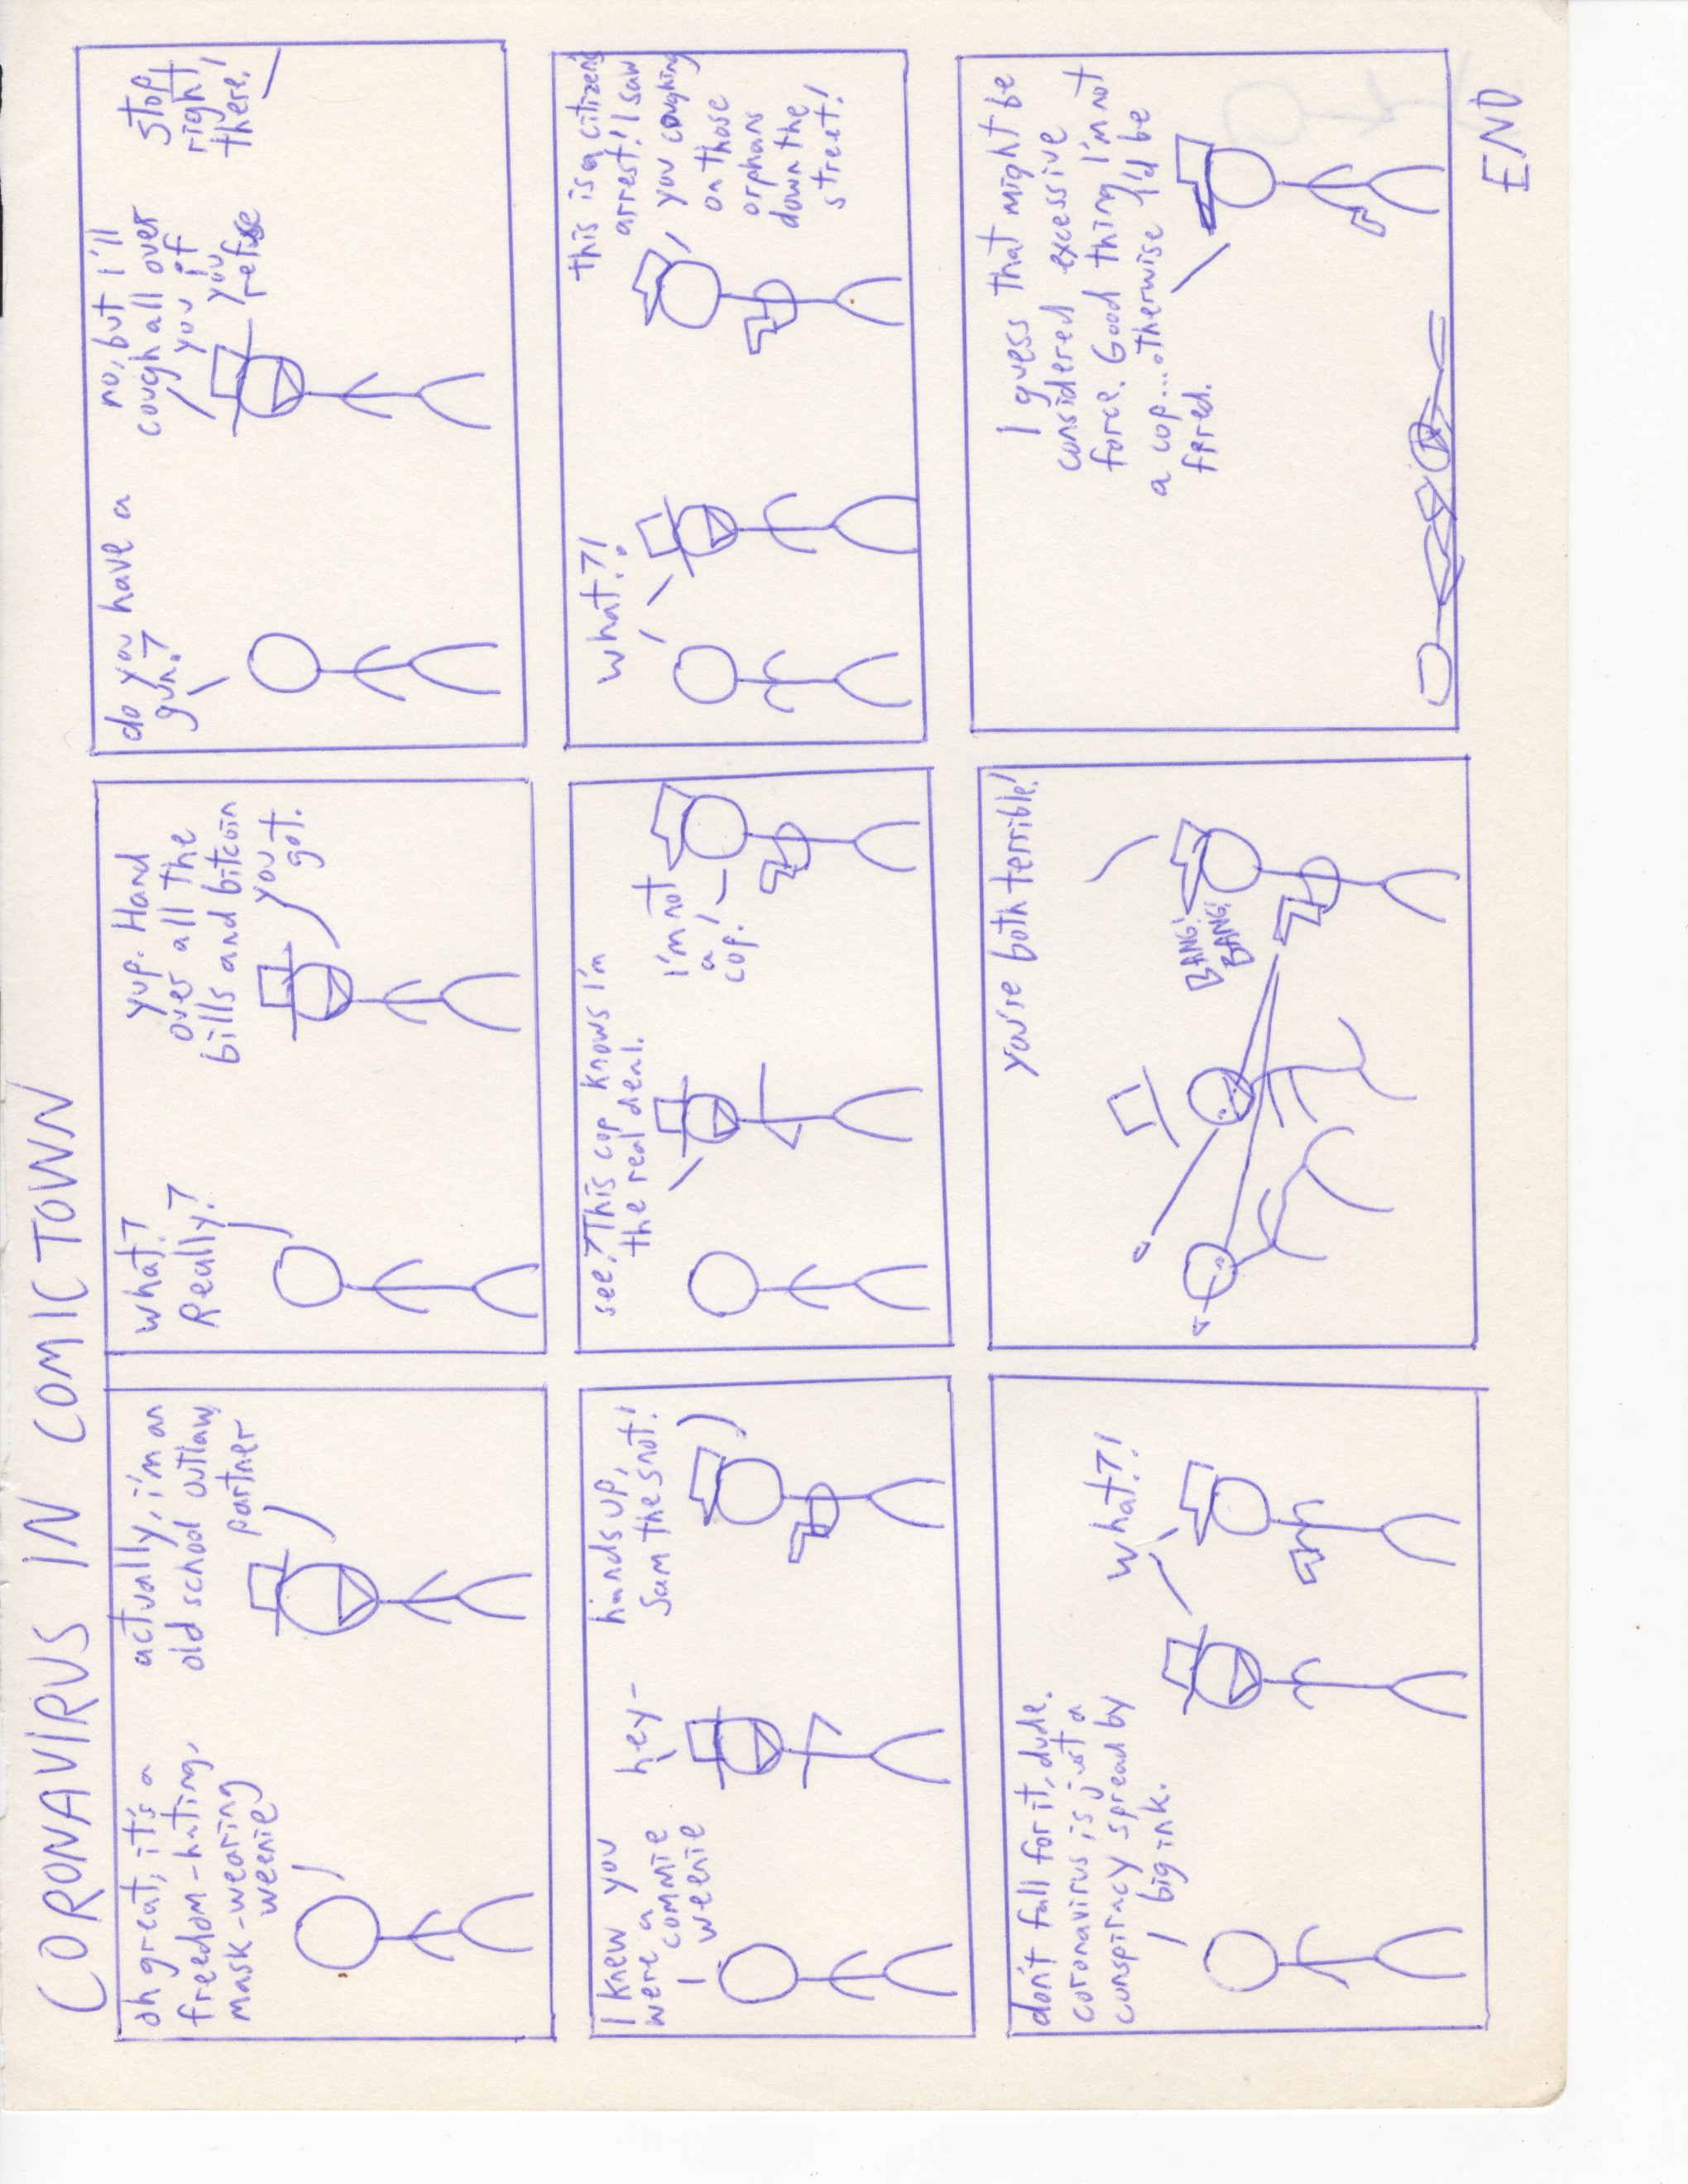 CORONAVIRUS IN COMICTOWN
oh great, it's a
freedom-hating,
mask-wearing
weenie
actually, i'm an
old school outlaw,
partner
what?
Really?
yup. Hand
over all the
bills and bitcoin
you
got.
do you have a
gun?
no, but I'll
cough all over
you if
you
refuse
stop
right
there!
I knew you
were a
commie
weenie
hey-
hands up,
Sam the snot!
see? This cop knows I'm
the real deal.
I'm not
a
cop!
what?!
this is a citizen's
arrest! I saw
you coughing
on those
orphans
down the
street!
don't fall for it, dude.
coronavirus is just a
conspiracy spread by
big ink.
what?!
you're both terrible!
BANG!
BANG!
I guess that might be
considered excessive
force. Good thing I'm not
a cop... otherwise I'd be
fired.
END